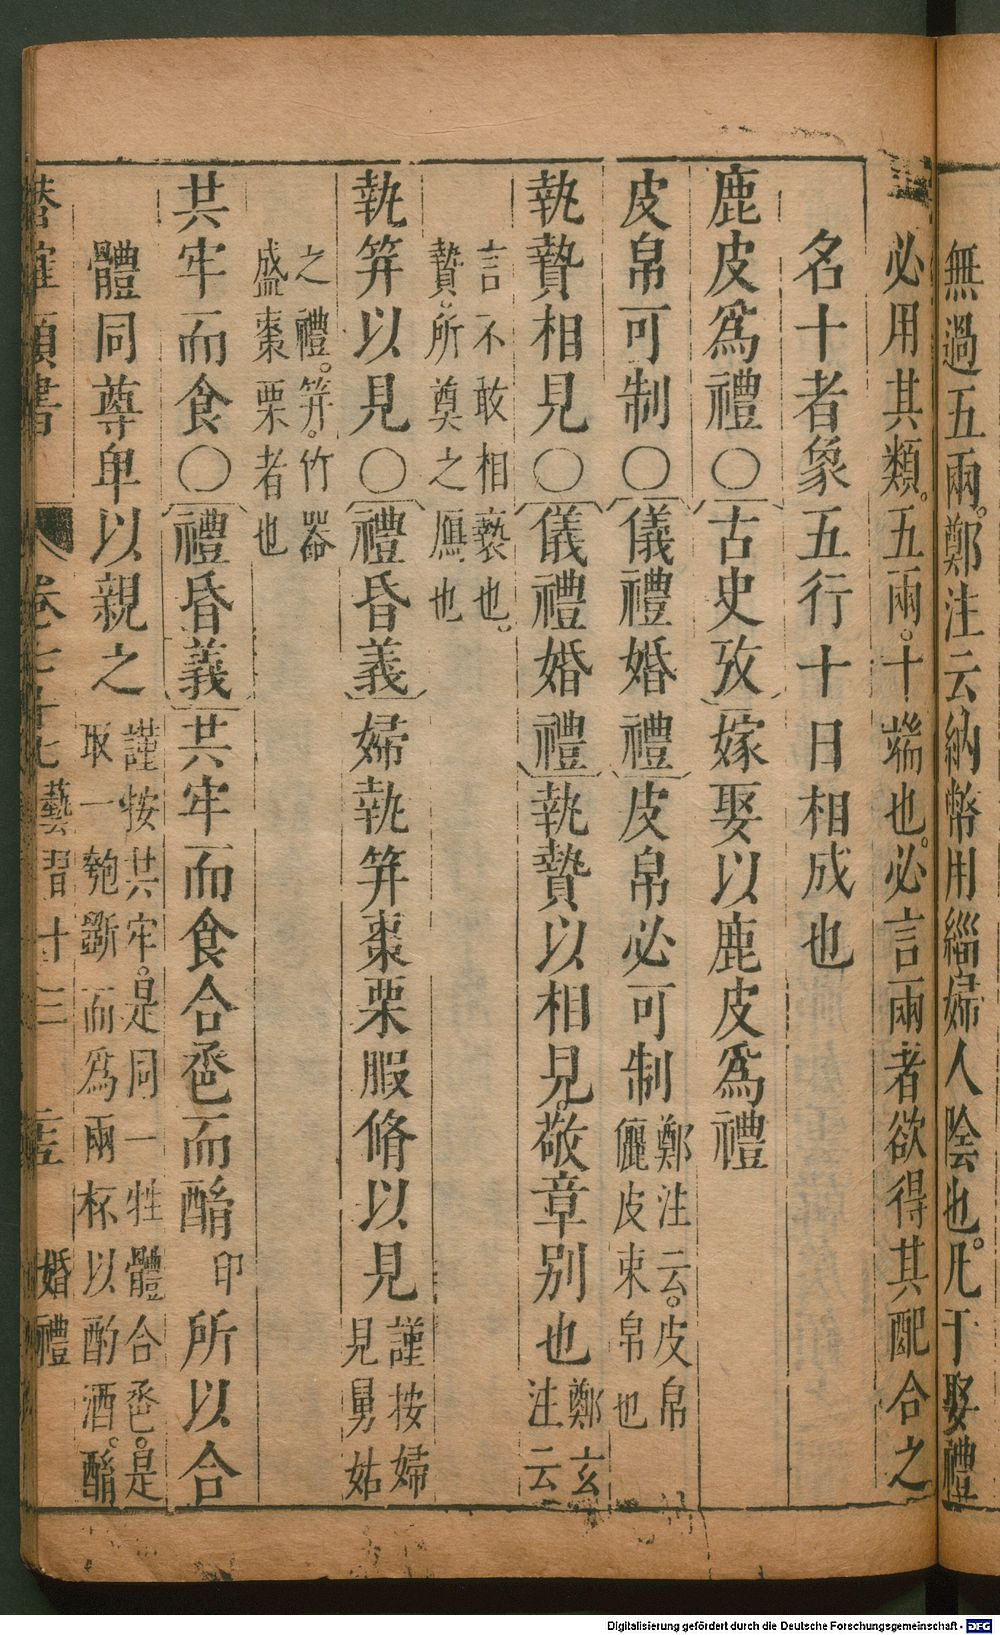 無過五兩。鄭注云納幣用緇婦人陰也。凡于娶禮
必用其類。五兩。十端也。必言兩者欲得其配合之
名十者象五行十日相成也
鹿皮爲禮○古史攷嫁娶以鹿皮爲禮
皮帛可制○儀禮婚禮皮帛必可制鄭注云。皮帛
儷皮束帛也
執贄相見○儀禮婚禮執贄以相見。敬章別也鄭玄
注云
言不敢相褻也。
贄。所奠之鴈也
執笲以見○禮昏義婦執笲棗栗腶脩以見謹按婦
見舅姑
之禮。笲。竹器
盛棗栗者也
共牢而食○禮昏義共牢而食合巹而酳印所以合
體同尊卑以親之謹按共牢。是同一牲體合巹。是
取一匏斷而爲兩杯以酌酒。酳
潛確類書 卷七十七藝習十三 三五 婚禮
Digitalisierung gefördert durch die Deutsche Forschungsgemeinschaft - DFG